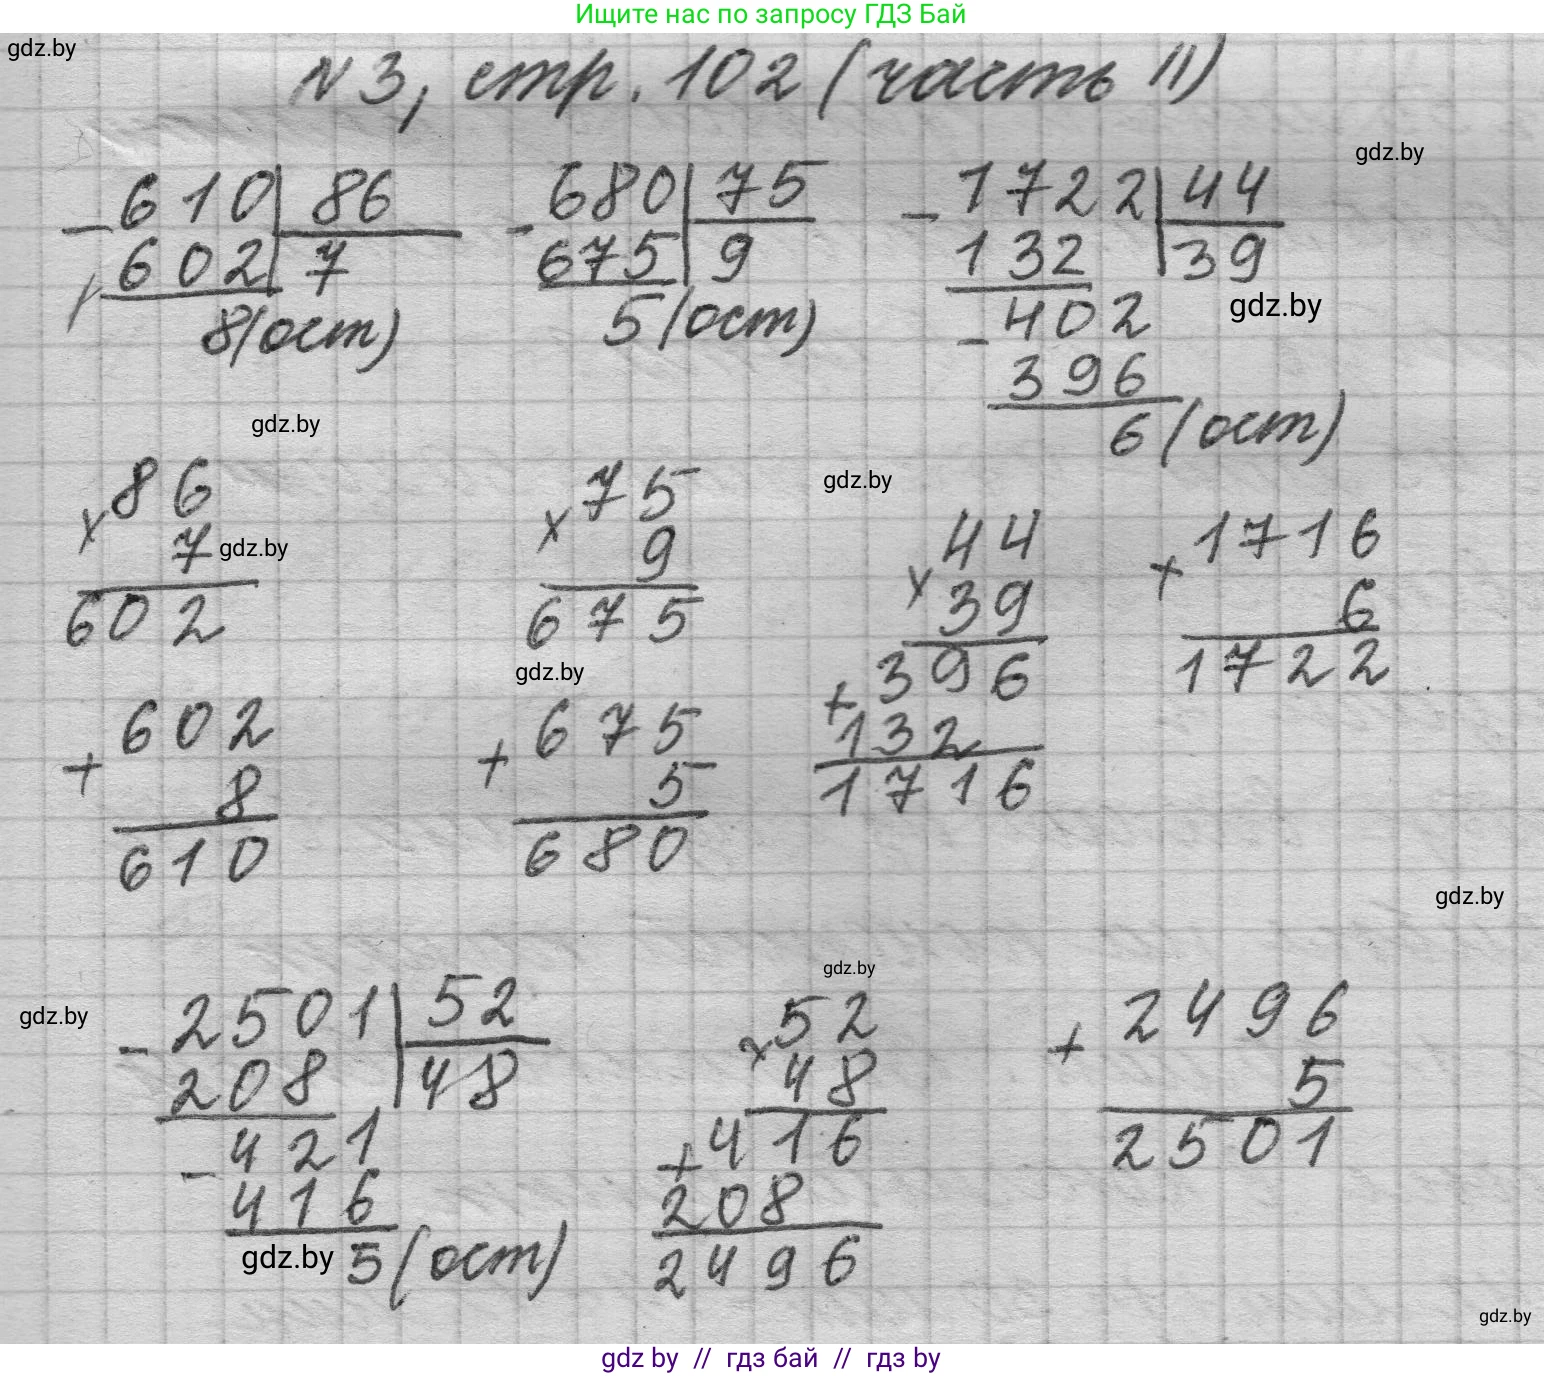 Ищите нас по запросу ГДЗ Бай
gdz.by
№3, стр. 102 (часть II)
gdz.by
- 610 | 86
602 | 7
8(ост)
- 680 | 75
675 | 9
5(ост)
- 1722 | 44
132 | 39
gdz.by
- 402
396
6(ост)
gdz.by
× 86
7
gdz.by
602
+ 602
8
610
× 75
9
675
gdz.by
+ 675
5
680
gdz.by
× 44
39
+ 396
132
1716
+ 1716
6
1722
gdz.by
gdz.by
- 2501 | 52
208 | 48
- 421
416
gdz.by
5(ост)
gdz.by
× 52
48
+ 416
208
2496
+ 2496
5
2501
gdz.by
gdz by // гдз бай // гдз by